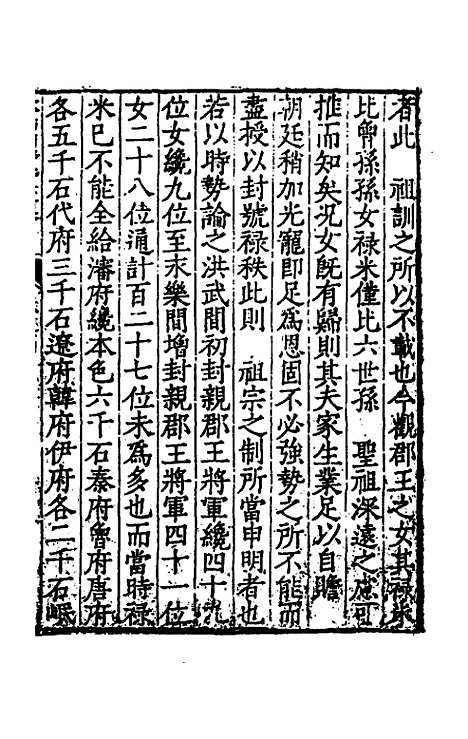 者此　祖訓之所以不載也今觀郡王之女其禄米
比曾孫孫女禄米僅比六世孫　聖祖深遠之慮可
推而知矣况女旣有歸則其夫家生業足以自贍
朝廷稍加光寵即足爲恩固不必強勢之所不能而
盡授以封號禄秩此則　祖宗之制所當申明者也
若以時勢論之洪武間初封親郡王將軍纔四十九
位女纔九位至永樂間增封親郡王將軍四十一位
女二十八位通計百二十七位未爲多也而當時禄
米已不能全給瀋府纔本色六千石秦府魯府唐府
各五千石代府三千石遼府韓府伊府各二千石岷